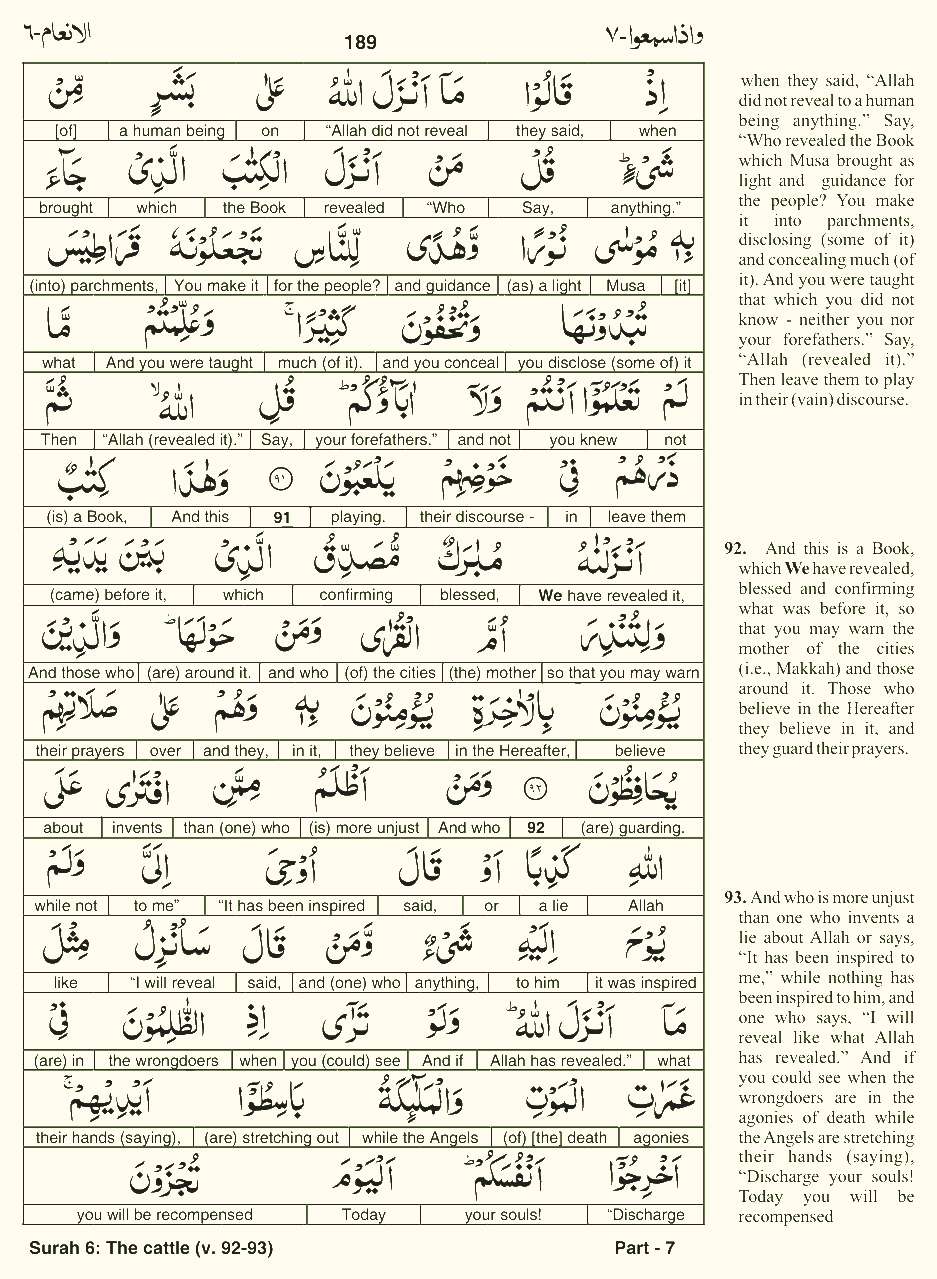 الانعام-٦
189
واذاسمعوا-٧
اِذْ قَالُوْا مَاۤ اَنْزَلَ اللّٰهُ عَلٰى بَشَرٍ مِّنْ
when | they said, | “Allah did not reveal | on | a human being | [of]
شَىْءٍ ؕ قُلْ مَنْ اَنْزَلَ الْكِتٰبَ الَّذِىْ جَآءَ
anything.” | Say, | “Who | revealed | the Book | which | brought
بِهٖ مُوْسٰى نُوْرًا وَّهُدًى لِّلنَّاسِ تَجْعَلُوْنَهٗ قَرَاطِيْسَ
[it] | Musa | (as) a light | and guidance | for the people? | You make it | (into) parchments,
تُبْدُوْنَهَا وَتُخْفُوْنَ كَثِيْرًا ۚ وَعُلِّمْتُمْ مَّا
you disclose (some of) it | and you conceal | much (of it). | And you were taught | what
لَمْ تَعْلَمُوْۤا اَنْتُمْ وَلَاۤ اٰبَآؤُكُمْ ؕ قُلِ اللّٰهُ ۙ ثُمَّ
not | you knew | and not | your forefathers.” | Say, | “Allah (revealed it).” | Then
ذَرْهُمْ فِىْ خَوْضِهِمْ يَلْعَبُوْنَ ٩١ وَهٰذَا كِتٰبٌ
leave them | in | their discourse - | playing. | 91 | And this | (is) a Book,
اَنْزَلْنٰهُ مُبٰرَكٌ مُّصَدِّقُ الَّذِىْ بَيْنَ يَدَيْهِ
We have revealed it, | blessed, | confirming | which | (came) before it,
وَلِتُنْذِرَ اُمَّ الْقُرٰى وَمَنْ حَوْلَهَا ؕ وَالَّذِيْنَ
so that you may warn | (the) mother | (of) the cities | and who | (are) around it. | And those who
يُؤْمِنُوْنَ بِالْاٰخِرَةِ يُؤْمِنُوْنَ بِهٖ وَهُمْ عَلٰى صَلَاتِهِمْ
believe | in the Hereafter, | they believe | in it, | and they, | over | their prayers
يُحَافِظُوْنَ ٩٢ وَمَنْ اَظْلَمُ مِمَّنِ افْتَرٰى عَلَى
(are) guarding. | 92 | And who | (is) more unjust | than (one) who | invents | about
اللّٰهِ كَذِبًا اَوْ قَالَ اُوْحِىَ اِلَىَّ وَلَمْ
Allah | a lie | or | said, | “It has been inspired | to me” | while not
يُوْحَ اِلَيْهِ شَىْءٌ وَّمَنْ قَالَ سَاُنْزِلُ مِثْلَ
it was inspired | to him | anything, | and (one) who | said, | “I will reveal | like
مَاۤ اَنْزَلَ اللّٰهُ ؕ وَلَوْ تَرٰۤى اِذِ الظّٰلِمُوْنَ فِىْ
what | Allah has revealed.” | And if | you (could) see | when | the wrongdoers | (are) in
غَمَرٰتِ الْمَوْتِ وَالْمَلٰٓئِكَةُ بَاسِطُوْۤا اَيْدِيْهِمْ ۚ
agonies | (of) [the] death | while the Angels | (are) stretching out | their hands (saying),
اَخْرِجُوْۤا اَنْفُسَكُمْ ؕ اَلْيَوْمَ تُجْزَوْنَ
“Discharge | your souls! | Today | you will be recompensed
when they said, “Allah
did not reveal to a human
being anything.” Say,
“Who revealed the Book
which Musa brought as
light and guidance for
the people? You make
it into parchments,
disclosing (some of it)
and concealing much (of
it). And you were taught
that which you did not
know - neither you nor
your forefathers.” Say,
“Allah (revealed it).”
Then leave them to play
in their (vain) discourse.
92. And this is a Book,
which We have revealed,
blessed and confirming
what was before it, so
that you may warn the
mother of the cities
(i.e., Makkah) and those
around it. Those who
believe in the Hereafter
they believe in it, and
they guard their prayers.
93. And who is more unjust
than one who invents a
lie about Allah or says,
“It has been inspired to
me,” while nothing has
been inspired to him, and
one who says, “I will
reveal like what Allah
has revealed.” And if
you could see when the
wrongdoers are in the
agonies of death while
the Angels are stretching
their hands (saying),
“Discharge your souls!
Today you will be
recompensed
Surah 6: The cattle (v. 92-93)
Part - 7